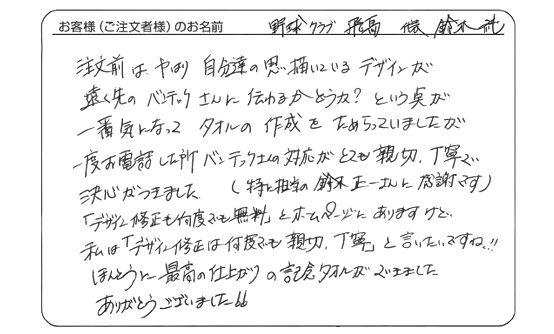 お客様(ご注文者様)のお名前 野球クラブ 飛高 様 鈴木 純
注文前は やはり 自分達の思い描いている デザインが
遠く先の バンテックさんに 伝わるかどうか? という点が
一番気になって タオルの 作成を ためらっていましたが
一度お電話した所 バンテックさんの対応が とても 親切、丁寧で
決心がつきました (特に担当の 鈴木 正一さんに 感謝です)
「デザイン修正も何度でも無料」とホームページにありますけど、
私は「デザイン修正は何度でも 親切、丁寧」と言いたいですね!!
ほんとうに 最高の仕上がりの記念タオルができました
ありがとうございました